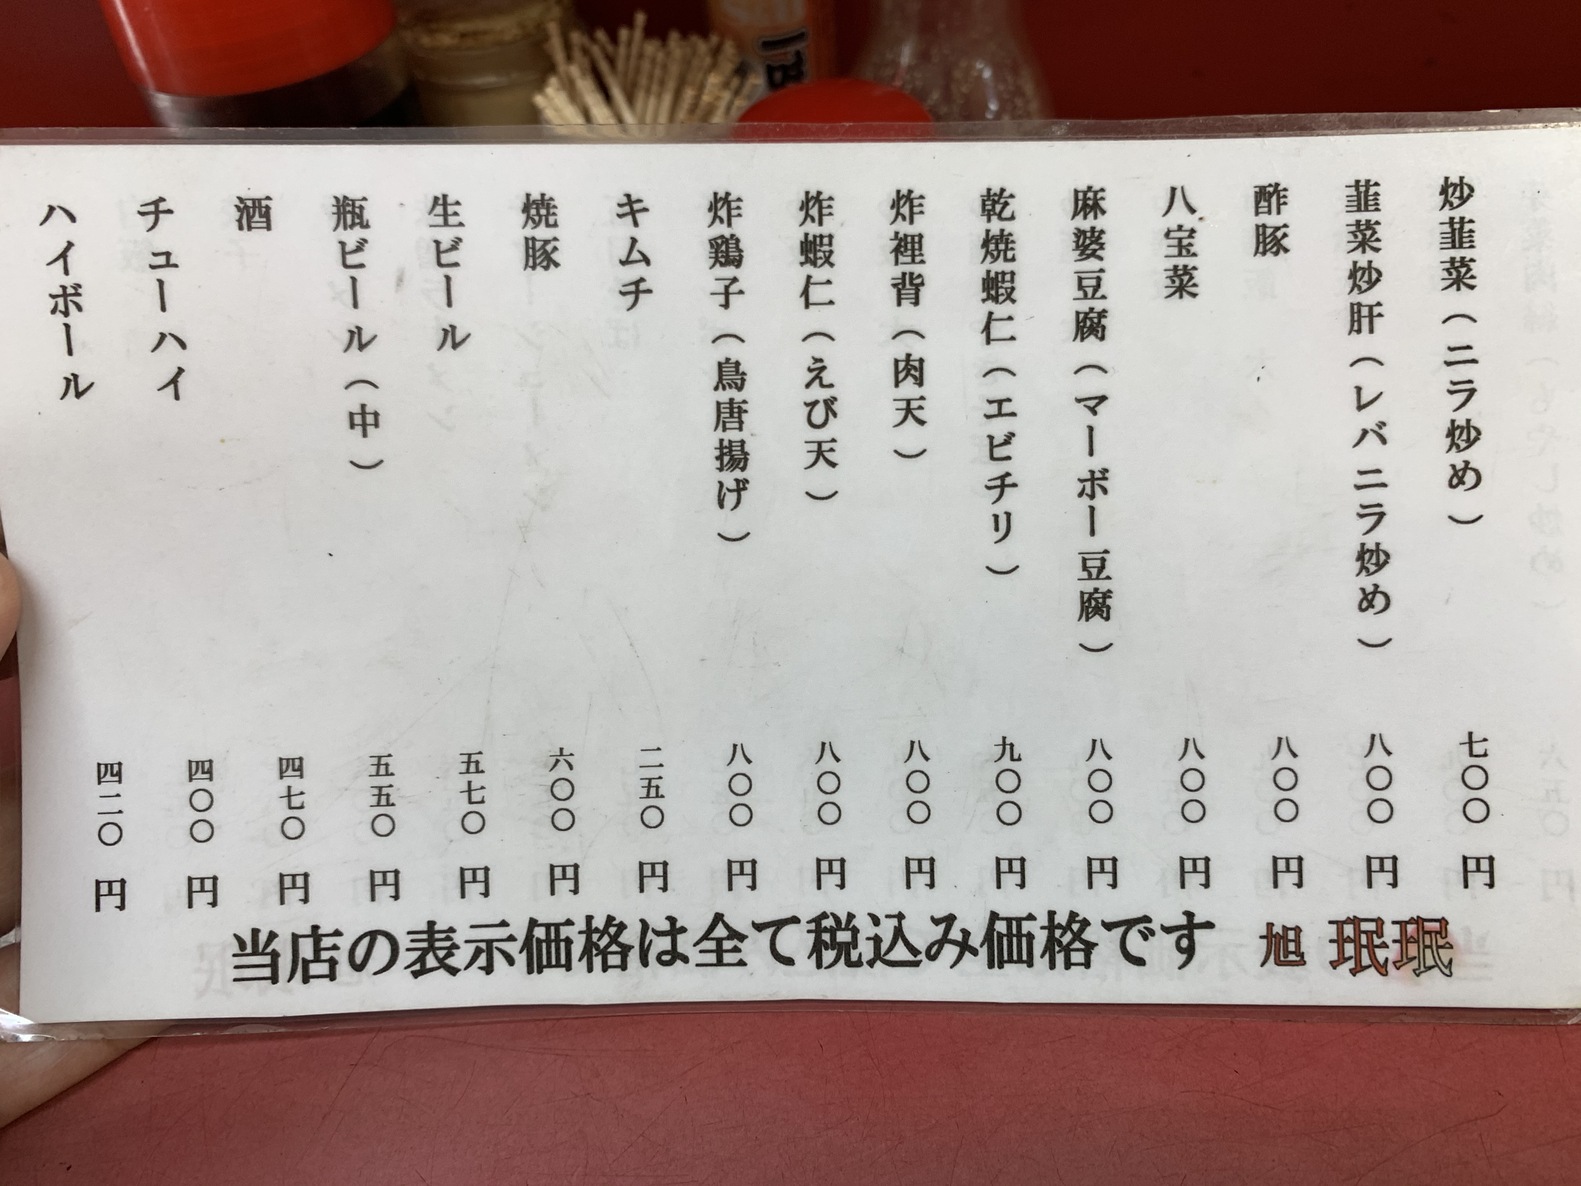 炒韮菜（ニラ炒め） 七〇〇円
韮菜炒肝（レバニラ炒め） 八〇〇円
酢豚 八〇〇円
八宝菜 八〇〇円
麻婆豆腐（マーボー豆腐） 八〇〇円
乾焼蝦仁（エビチリ） 九〇〇円
炸裡背（肉天） 八〇〇円
炸蝦仁（えび天） 八〇〇円
炸鶏子（鳥唐揚げ） 八〇〇円
キムチ 二五〇円
焼豚 六〇〇円
生ビール 五七〇円
瓶ビール（中） 五五〇円
酒 四七〇円
チューハイ 四〇〇円
ハイボール 四二〇円
当店の表示価格は全て税込み価格です 旭 珉珉